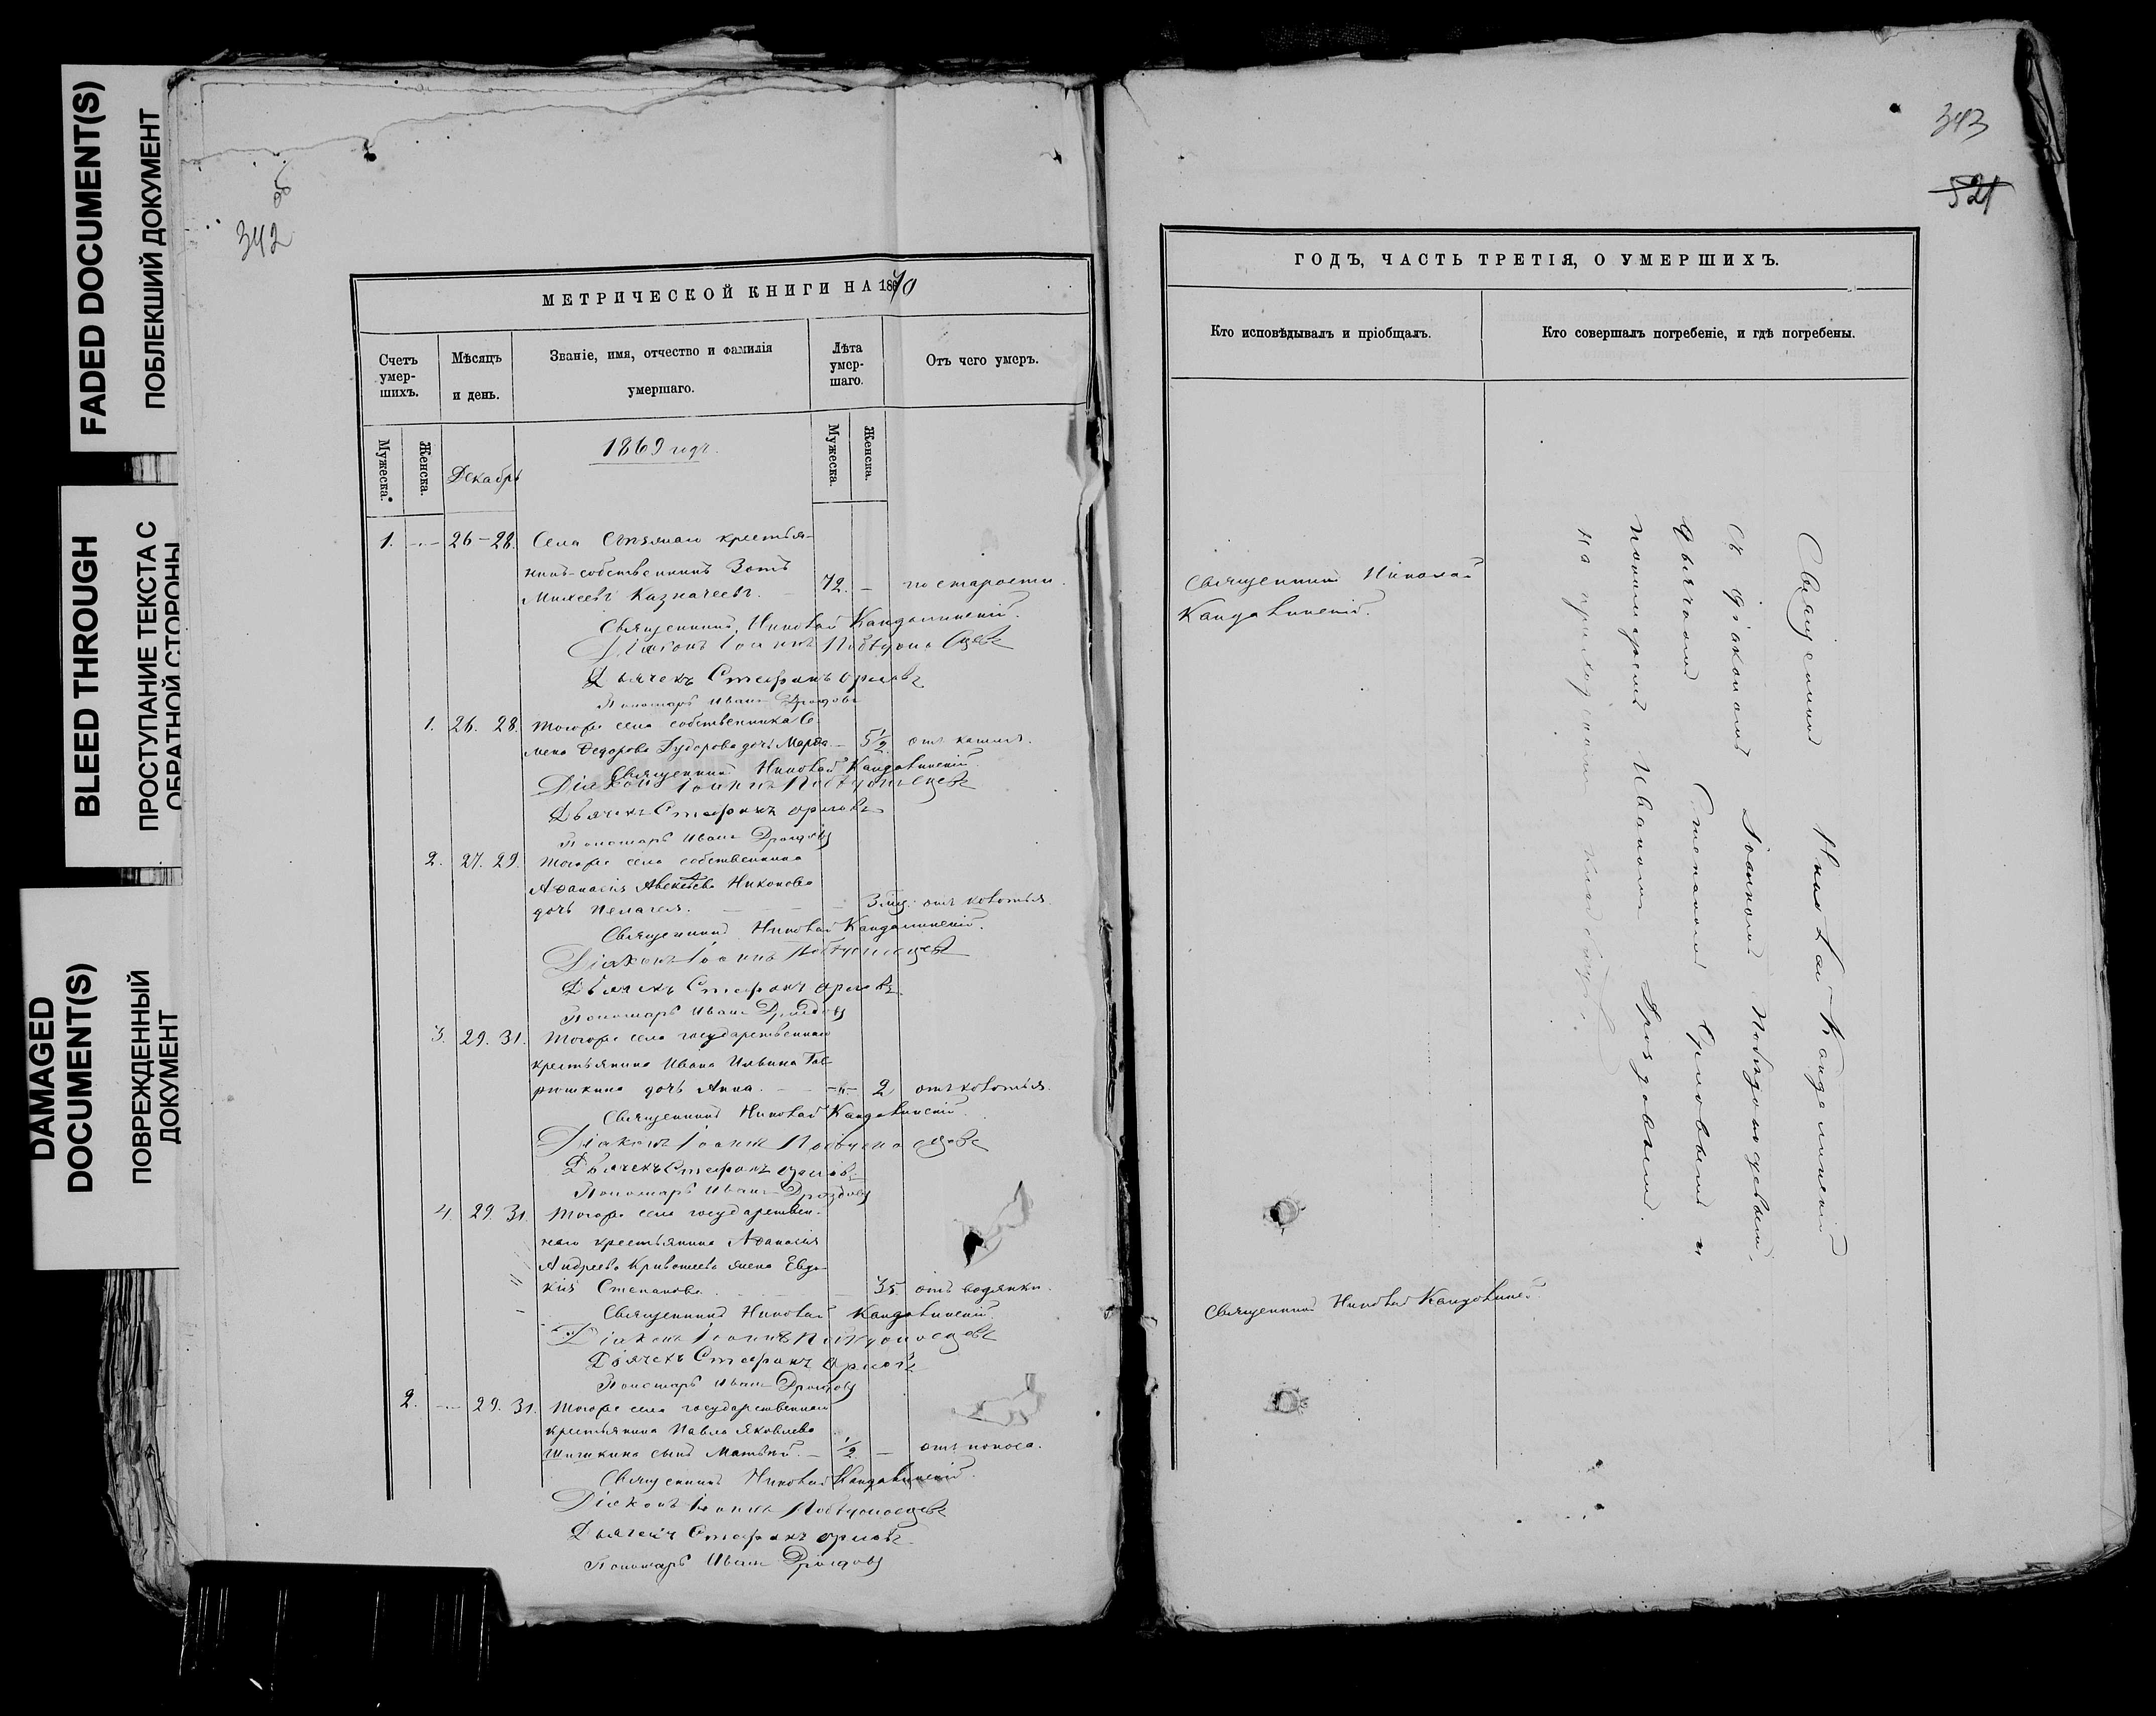 FADED DOCUMENT(S)
ПОБЛЕКШИЙ ДОКУМЕНТ
BLEED THROUGH
ПРОСТУПАНИЕ ТЕКСТА С
ОБРАТНОЙ СТОРОНЫ
DAMAGED
DOCUMENT(S)
ПОВРЕЖДЕННЫЙ
ДОКУМЕНТ
342
МЕТРИЧЕСКОЙ КНИГИ НА 1870
Счетъ умер- шихъ.
Мѣсяцъ и день.
Званіе, имя, отчество и фамилія умершаго.
Лѣта умер- шаго.
Отъ чего умеръ.
Мужеска.
Женска.
Декабрь
1869 годъ.
Мужеска.
Женска.
1. 26-28. Села крестья-
нинъ-собственникъ Зотъ
Михеевъ Казначеевъ. 72. по старости.
Священникъ Николай Кандалинскій.
Діаконъ Іоаннъ Побѣдоносцевъ
Дьячекъ Стефанъ Орловъ
Пономарь Иванъ Дроздовъ
1. 26. 28. Тогоже села собственника Се
мена Федорова дочь Марѳа 5½ отъ кашля.
Священникъ Николай Кандалинскій.
Діаконъ Іоаннъ Побѣдоносцевъ
Дьячекъ Стефанъ Орловъ
Пономарь Иванъ Дроздовъ
2. 27. 29. Тогоже села собственника
Аѳанасія Никонова
дочь Пелагея. 3 мѣс. отъ колотья.
Священникъ Николай Кандалинскій.
Діаконъ Іоаннъ Побѣдоносцевъ
Дьячекъ Стефанъ Орловъ
Пономарь Иванъ Дроздовъ
3. 29. 31. Тогоже села государственнаго
крестьянина Ивана Ильина Гав
рюшкина дочь Анна. 2 отъ колотья.
Священникъ Николай Кандалинскій.
Діаконъ Іоаннъ Побѣдоносцевъ
Дьячекъ Стефанъ Орловъ
Пономарь Иванъ Дроздовъ
4. 29. 31. Тогоже села государствен-
наго крестьянина Аѳанасія
Андреева Кривошеева жена Евдо-
кія Степанова. 35. отъ водянки.
Священникъ Николай Кандалинскій.
Діаконъ Іоаннъ Побѣдоносцевъ
Дьячекъ Стефанъ Орловъ
Пономарь Иванъ Дроздовъ
2. 29. 31. Тогоже села государственнаго
крестьянина Павла Яковлева
Шишкина сынъ Матвѣй. ½ отъ поноса.
Священникъ Николай Кандалинскій.
Діаконъ Іоаннъ Побѣдоносцевъ
Дьячекъ Стефанъ Орловъ
Пономарь Иванъ Дроздовъ
343
521
ГОДЪ, ЧАСТЬ ТРЕТІЯ, О УМЕРШИХЪ.
Кто исповѣдывалъ и пріобщалъ.
Кто совершалъ погребеніе, и гдѣ погребены.
Священникъ Николай
Кандалинскій.
Священникъ Николай Кандалинскій
съ діакономъ Іоанномъ Побѣдоносцевымъ,
дьячкомъ Стефаномъ Орловымъ и
пономаремъ Иваномъ Дроздовымъ.
на приходскомъ кладбищѣ.
Священникъ Николай Кандалинскій.